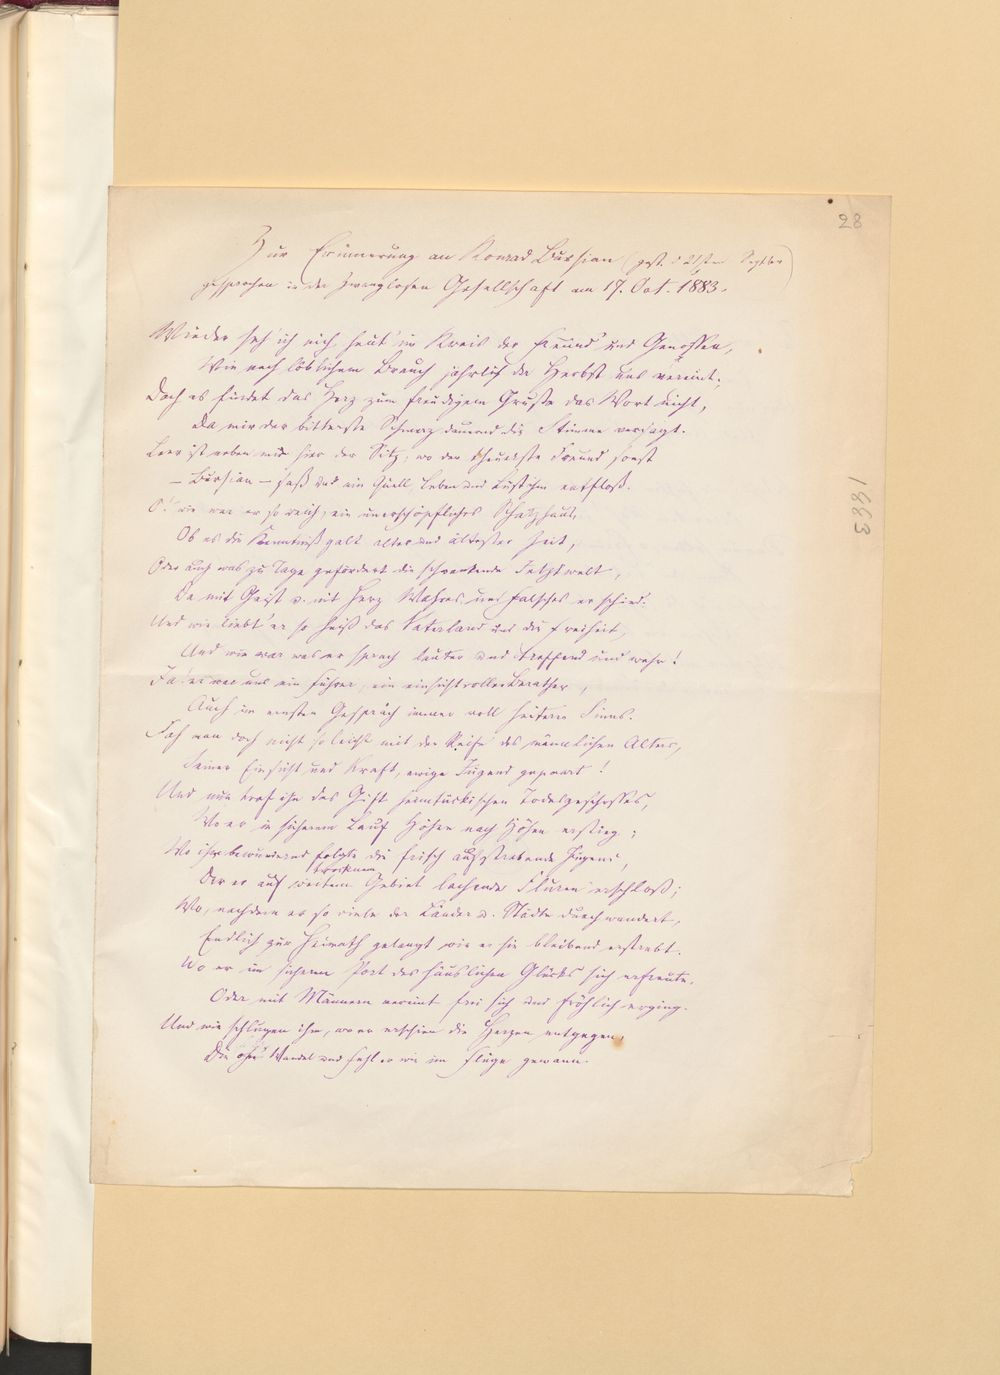 28
Zur Erinnerung an Konrad Bursian (gest. d 21sten Septber)
gesprochen in der Zwanglosen Gesellschaft am 17. Oct. 1883.
Wieder seh' ich mich heut' im Kreis der Freund' und Genossen,
Wie nach löblichem Brauch jährlich der Herbst uns vereint;
Doch es findet das Herz zum freudigem Gruße das Wort nicht,
Da mir der bitterste Schmerz dauernd die Stimme versagt.
Leer ist neben mir hier der Sitz, wo der theuerste Freund sonst
– Bursian – saß und ein Quell, Leben und Lust ihm entfloß.
O! wie war er so reich, ein unerschöpfliches Schatzhaus,
Ob es die Kenntniß galt alter und ältester Zeit,
Oder auch was zu Tage gefördert die schwankende Jetztwelt,
Da mit Geist u. mit Herz Wahres und Falsches er schied.
Und wie liebt' er so heiß das Vaterland und die Freiheit,
Und wie war was er sprach lauter und treffend und wahr!
Ja er war uns ein Führer, ein einsichtvoller Berather,
Auch im ernsten Gespräch immer voll heiteren Sinns.
Sah man doch nicht so leicht mit der Reife des männlichen Alters,
Seiner Einsicht und Kraft, ewige Jugend gepaart!
Und nun traf ihn das Gift heimtückischen Todesgeschosses,
Wo er in sicherem Lauf Höhen nach Höhen erstieg;
Wo ihm bewundernd folgte die frisch aufstrebende Jugend,
trocknem
Der er auf weitem Gebiet lachende Fluren erschloß;
Wo, nachdem er so viele der Länder u. Städte durchwandert,
Endlich zur Heimath gelangt wie er sie bleibend erstrebt.
Wo er im sicheren Port des häuslichen Glücks sich erfreute,
Oder mit Männern vereint frei sich und fröhlich erging.
Und wie schlugen ihm, wo er erschien die Herzen entgegen,
Die ohn' Wandel und Fehl er wie im Fluge gewann.
1883